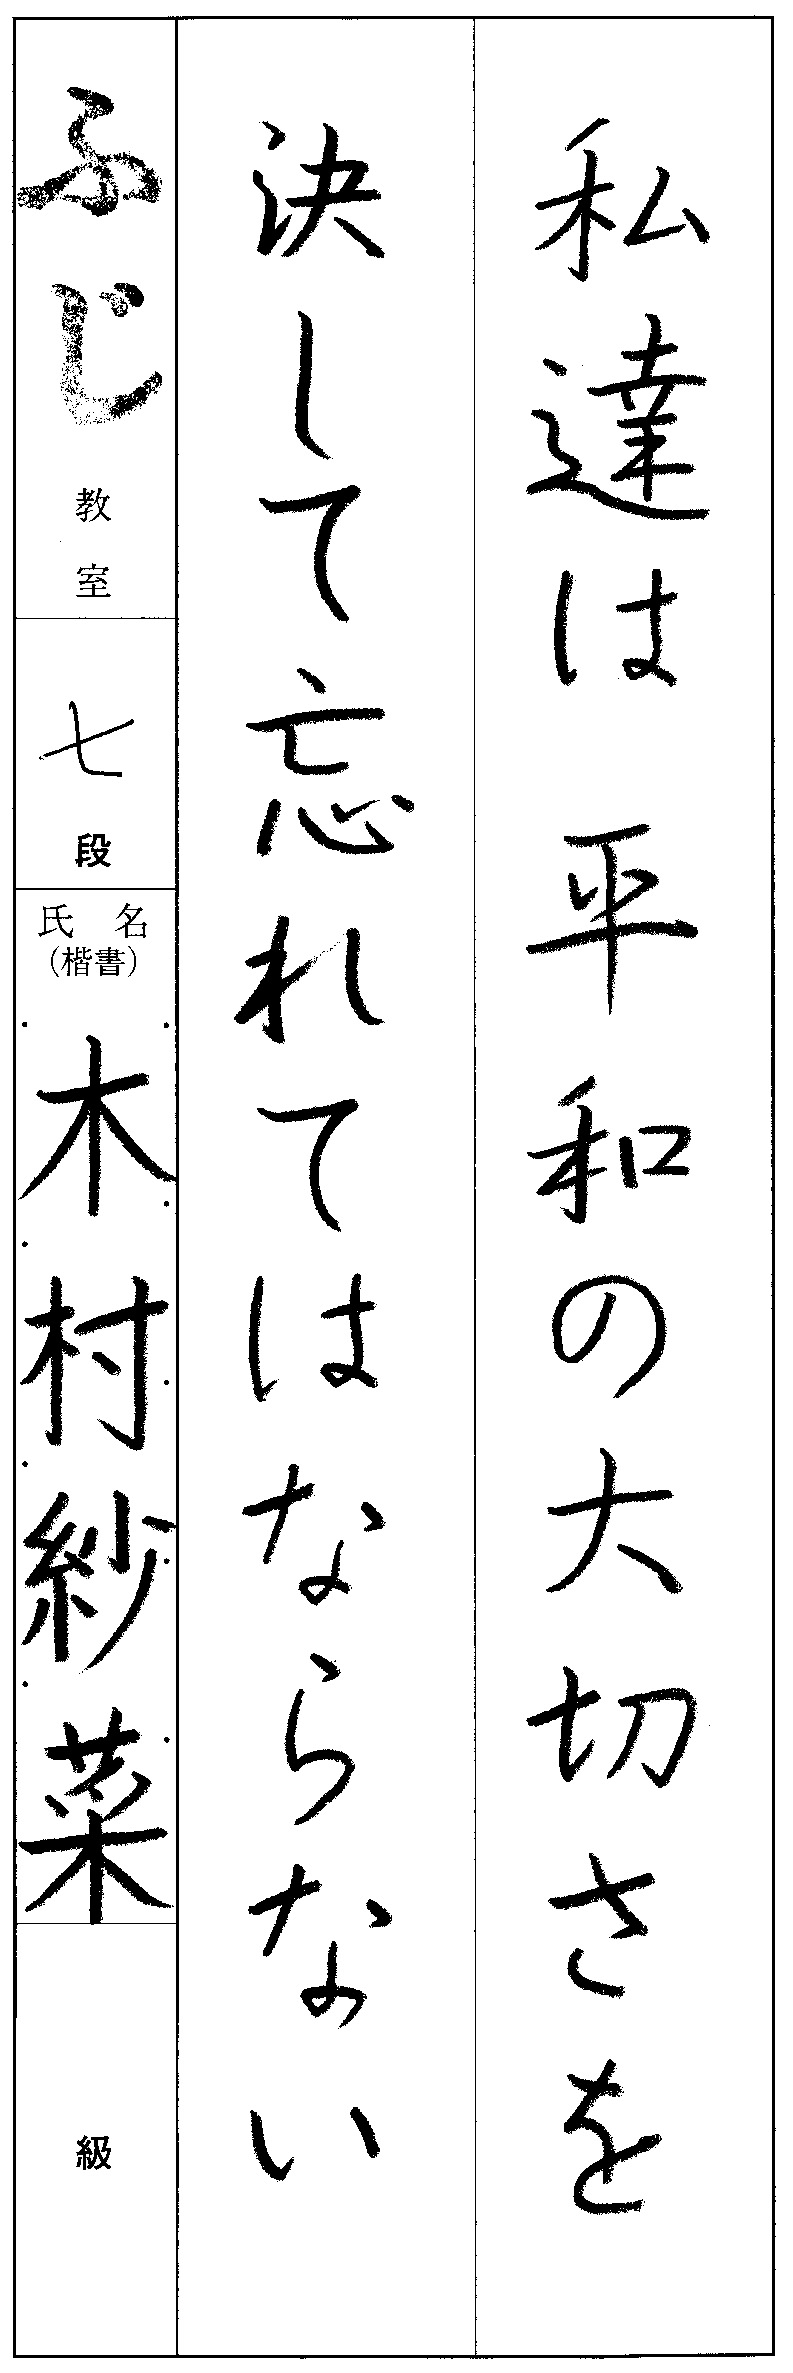 私達は 平和の大切さを
決して忘れてはならない
ふじ教室
七段
氏 名
(楷書)
木村紗菜
級